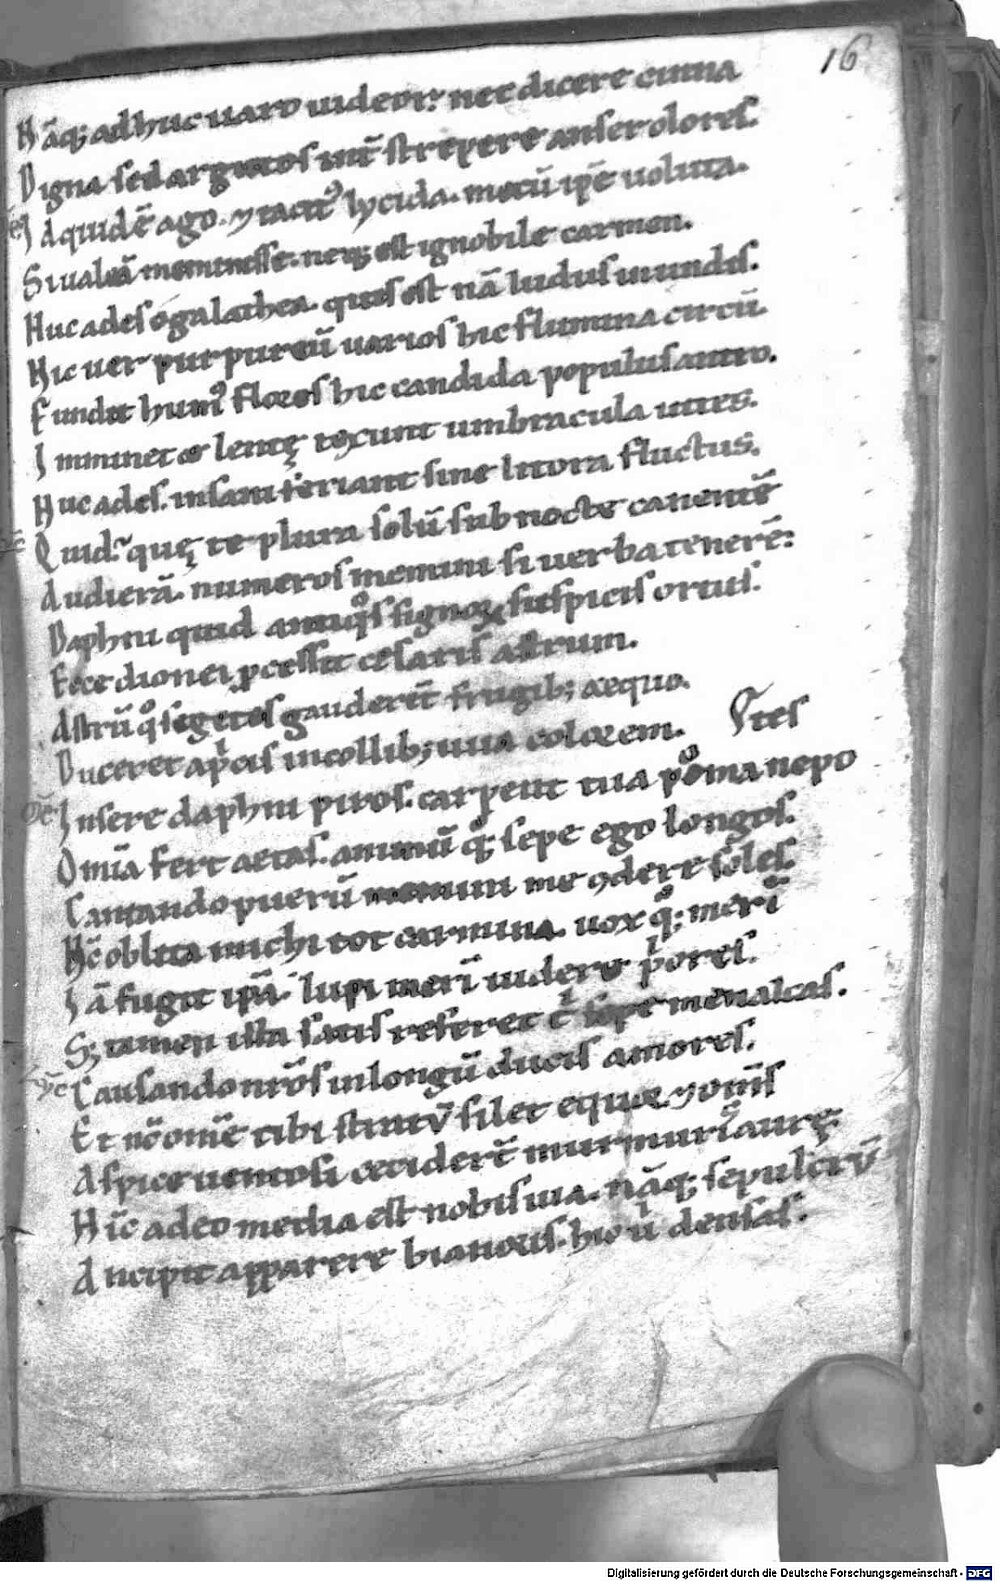 16
Nāq; adhuc uaro uideor; nec dicere cinna
Digna sed argutos int̄ strepere anser olores.
Id quidē ago. ⁊ tacit᷒ lycida. mecū ip̄e uoluta.
Si ualeā meminisse. neq; est ignobile carmen.
Huc ades o galathea. quis est nā ludus in undis.
Hic uer purpureū uarios hic flumina circū.
Fundit hum᷒ flores hic candida populus antro.
Imminet & lentę texunt umbracula uites.
Huc ades. insani feriant sine litora fluctus.
Quid. quę te plura solū sub nocte canentē
Audierā. numeros memini si uerba tenerē:
Daphni quid antiqͦs signoꝝ suspicis ortus.
Ecce dionei ꝓcessit cesaris astrum.
Astrū qͦ segetes gauderēt frugib; & equo.
Duceret ap̍cis in collib; uua colorem.
Insere daphni piros. carpent tua poma nepo
tes
Omīa fert aetas. animū q; sepe ego longos.
Cantando puerū memini me ꝯdere soles.
Nc̄ oblita michi tot carmina. uox q; meri
Iā fugit ipā. lupi meri uidere p̍ores.
S; tamen ista satis referet t̍ sepe menalcas.
Causando nr̄os in longū ducis amores.
Et nc̄ om̄e tibi stratū silet equor ⁊ om̄s
Aspice uentosi cecidert̄ murmuris aurę.
Hīc adeo media est nobis uia. nāq; sepulcrū
Incipit apparere bianoris. hic u̍ densas.
Digitalisierung gefördert durch die Deutsche Forschungsgemeinschaft - DFG